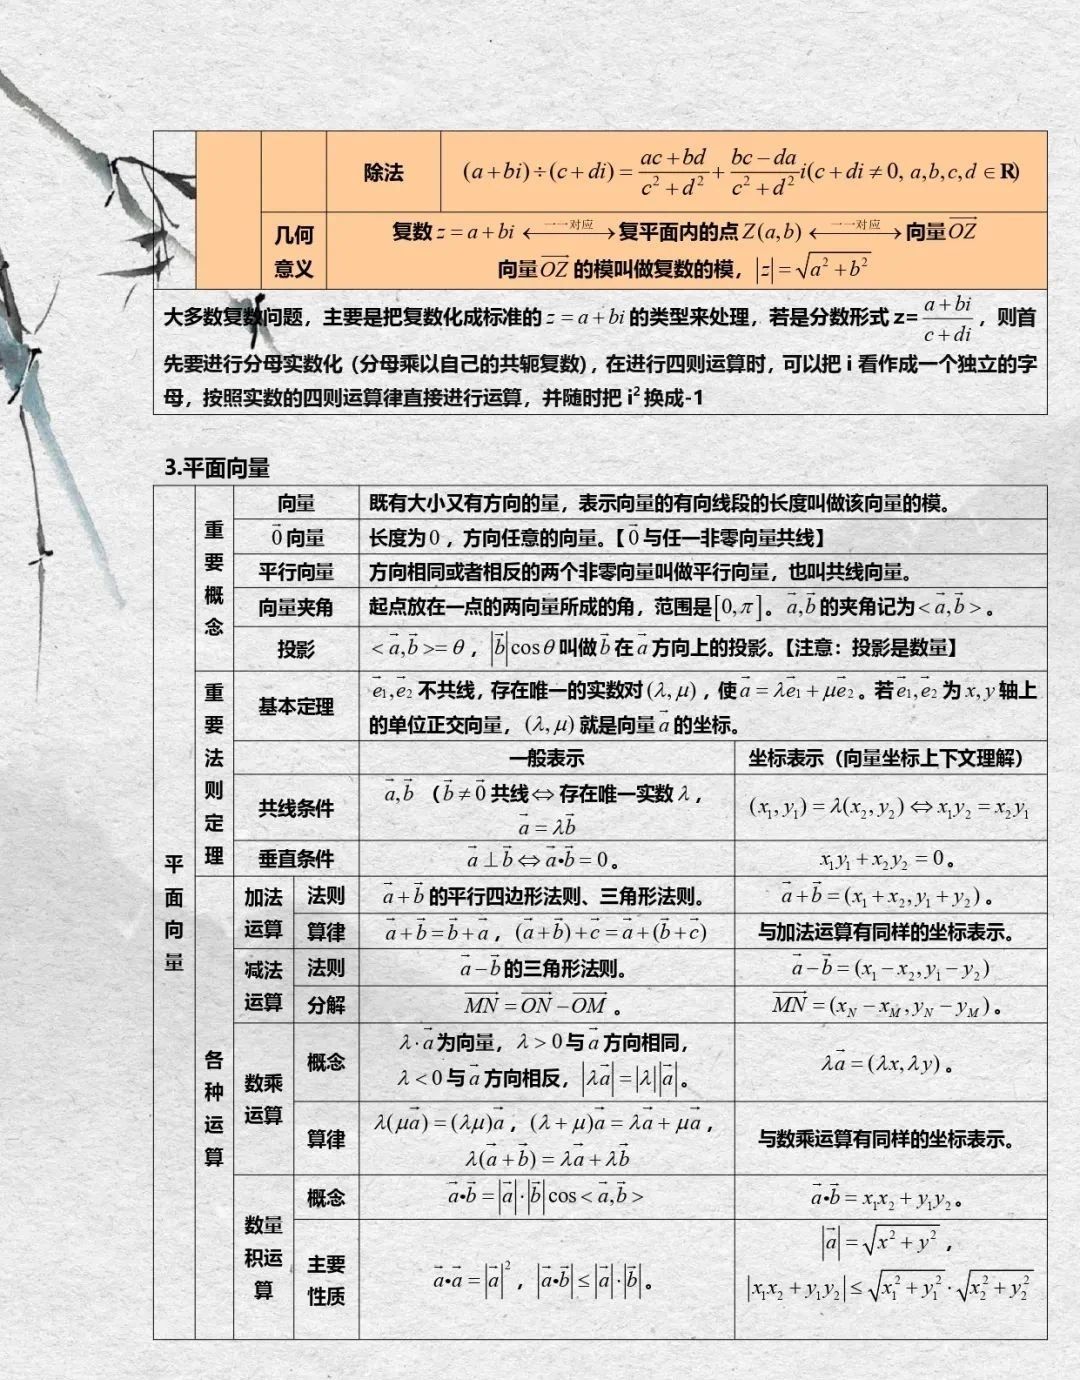 除法 (a+bi)÷(c+di)=\frac{ac+bd}{c^2+d^2}+\frac{bc-da}{c^2+d^2}i(c+di≠0, a,b,c,d∈R)
几何意义
复数z=a+bi ←一一对应→ 复平面内的点Z(a,b) ←一一对应→ 向量\overrightarrow{OZ}
向量\overrightarrow{OZ}的模叫做复数的模，|z|=\sqrt{a^2+b^2}
大多数复数问题，主要是把复数化成标准的z=a+bi的类型来处理，若是分数形式z=\frac{a+bi}{c+di}，则首
先要进行分母实数化（分母乘以自己的共轭复数），在进行四则运算时，可以把i看作成一个独立的字
母，按照实数的四则运算律直接进行运算，并随时把i²换成-1
3.平面向量
平面向量
重要概念
向量 既有大小又有方向的量，表示向量的有向线段的长度叫做该向量的模。
\vec{0}向量 长度为0，方向任意的向量。【\vec{0}与任一非零向量共线】
平行向量 方向相同或者相反的两个非零向量叫做平行向量，也叫共线向量。
向量夹角 起点放在一点的两向量所成的角，范围是[0,π]。\vec{a},\vec{b}的夹角记为<\vec{a},\vec{b}>。
投影 <\vec{a},\vec{b}>=θ，|\vec{b}|cosθ叫做\vec{b}在\vec{a}方向上的投影。【注意：投影是数量】
重要法则定理
基本定理 \vec{e_1},\vec{e_2}不共线，存在唯一的实数对(λ,μ)，使\vec{a}=λ\vec{e_1}+μ\vec{e_2}。若\vec{e_1},\vec{e_2}为x,y轴上
的单位正交向量，(λ,μ)就是向量\vec{a}的坐标。
一般表示 坐标表示（向量坐标上下文理解）
共线条件 \vec{a},\vec{b}（\vec{b}≠\vec{0}共线⇔存在唯一实数λ，
\vec{a}=λ\vec{b}
(x_1,y_1)=λ(x_2,y_2)⇔x_1y_2=x_2y_1
垂直条件 \vec{a}⊥\vec{b}⇔\vec{a}•\vec{b}=0。 x_1y_1+x_2y_2=0。
各种运算
加法运算
法则 \vec{a}+\vec{b}的平行四边形法则、三角形法则。 \vec{a}+\vec{b}=(x_1+x_2,y_1+y_2)。
算律 \vec{a}+\vec{b}=\vec{b}+\vec{a}，(\vec{a}+\vec{b})+\vec{c}=\vec{a}+(\vec{b}+\vec{c}) 与加法运算有同样的坐标表示。
减法运算
法则 \vec{a}-\vec{b}的三角形法则。 \vec{a}-\vec{b}=(x_1-x_2,y_1-y_2)
分解 \overrightarrow{MN}=\overrightarrow{ON}-\overrightarrow{OM}。 \overrightarrow{MN}=(x_N-x_M,y_N-y_M)。
数乘运算
概念 λ·\vec{a}为向量，λ>0与\vec{a}方向相同，
λ<0与\vec{a}方向相反，|λ\vec{a}|=|λ||\vec{a}|。
λ\vec{a}=(λx,λy)。
算律 λ(μ\vec{a})=(λμ)\vec{a}，(λ+μ)\vec{a}=λ\vec{a}+μ\vec{a}，
λ(\vec{a}+\vec{b})=λ\vec{a}+λ\vec{b}
与数乘运算有同样的坐标表示。
数量积运算
概念 \vec{a}•\vec{b}=|\vec{a}|·|\vec{b}|cos<\vec{a},\vec{b}> \vec{a}•\vec{b}=x_1x_2+y_1y_2。
主要性质 \vec{a}•\vec{a}=|\vec{a}|^2，|\vec{a}•\vec{b}|≤|\vec{a}|·|\vec{b}|。
|\vec{a}|=\sqrt{x^2+y^2}，
|x_1x_2+y_1y_2|≤\sqrt{x_1^2+y_1^2}·\sqrt{x_2^2+y_2^2}